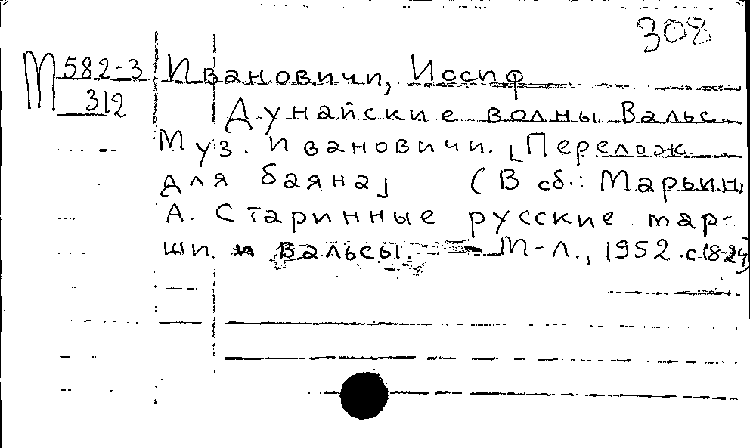 308
М 582-3 Ивановичи, Иосиф
312 Дунайские волны Вальс
Муз. Ивановичи. [Перелож.
для баяна] (В сб.: Марьин,
А. Старинные русские мар-
ши и вальсы. — М-Л., 1952. с. 18-24)